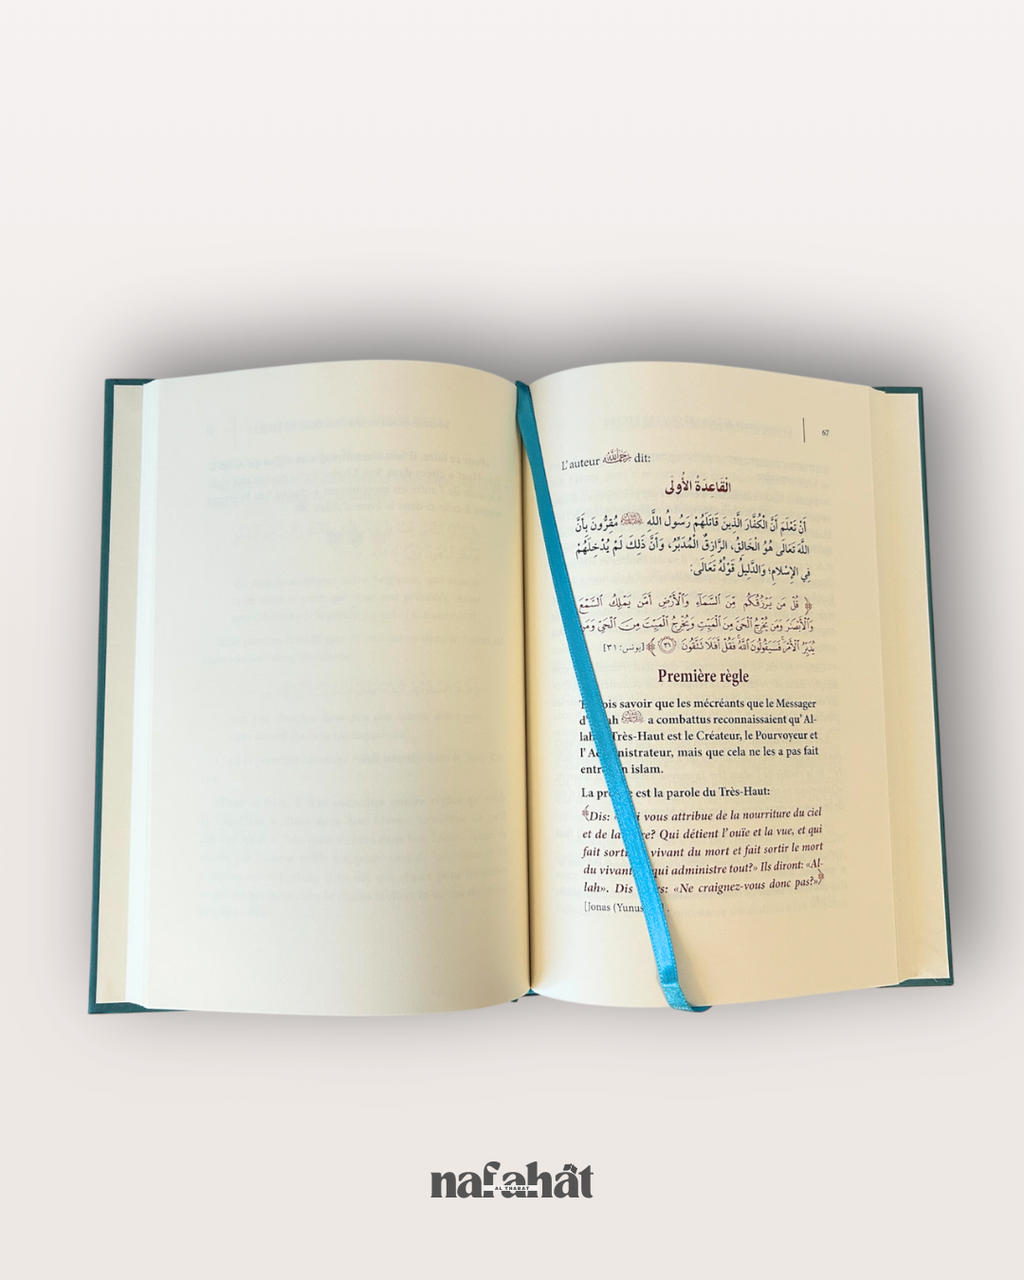 67
L'auteur رحمه الله dit:
الْقَاعِدَةُ الأُولَى
أَنْ تَعْلَمَ أَنَّ الْكُفَّارَ الَّذِينَ قَاتَلَهُمْ رَسُولُ اللَّهِ ﷺ مُقِرُّونَ بِأَنَّ
اللَّهَ تَعَالَى هُوَ الْخَالِقُ، الرَّازِقُ الْمُدَبِّرُ، وَأَنَّ ذَلِكَ لَمْ يُدْخِلْهُمْ
فِي الإِسْلامِ؛ وَالدَّلِيلُ قَوْلُهُ تَعَالَى:
﴿ قُلْ مَن يَرْزُقُكُم مِّنَ ٱلسَّمَآءِ وَٱلْأَرْضِ أَمَّن يَمْلِكُ ٱلسَّمْعَ
وَٱلْأَبْصَٰرَ وَمَن يُخْرِجُ ٱلْحَىَّ مِنَ ٱلْمَيِّتِ وَيُخْرِجُ ٱلْمَيِّتَ مِنَ ٱلْحَىِّ وَمَن
يُدَبِّرُ ٱلْأَمْرَ فَسَيَقُولُونَ ٱللَّهُ فَقُلْ أَفَلَا تَتَّقُونَ ٣١ ﴾ [يونس: ٣١]
Première règle
savoir que les mécréants que le Messager
ﷺ a combattus reconnaissaient qu'Al-
Très-Haut est le Créateur, le Pourvoyeur et
mais que cela ne les a pas fait
islam.
La est la parole du Très-Haut:
﴿Dis: vous attribue de la nourriture du ciel
et de la Qui détient l'ouïe et la vue, et qui
fait vivant du mort et fait sortir le mort
du vivant, qui administre tout?» Ils diront: «Al-
lah». Dis «Ne craignez-vous donc pas?»﴾
[Jonas
nafahāt
AL THABAT